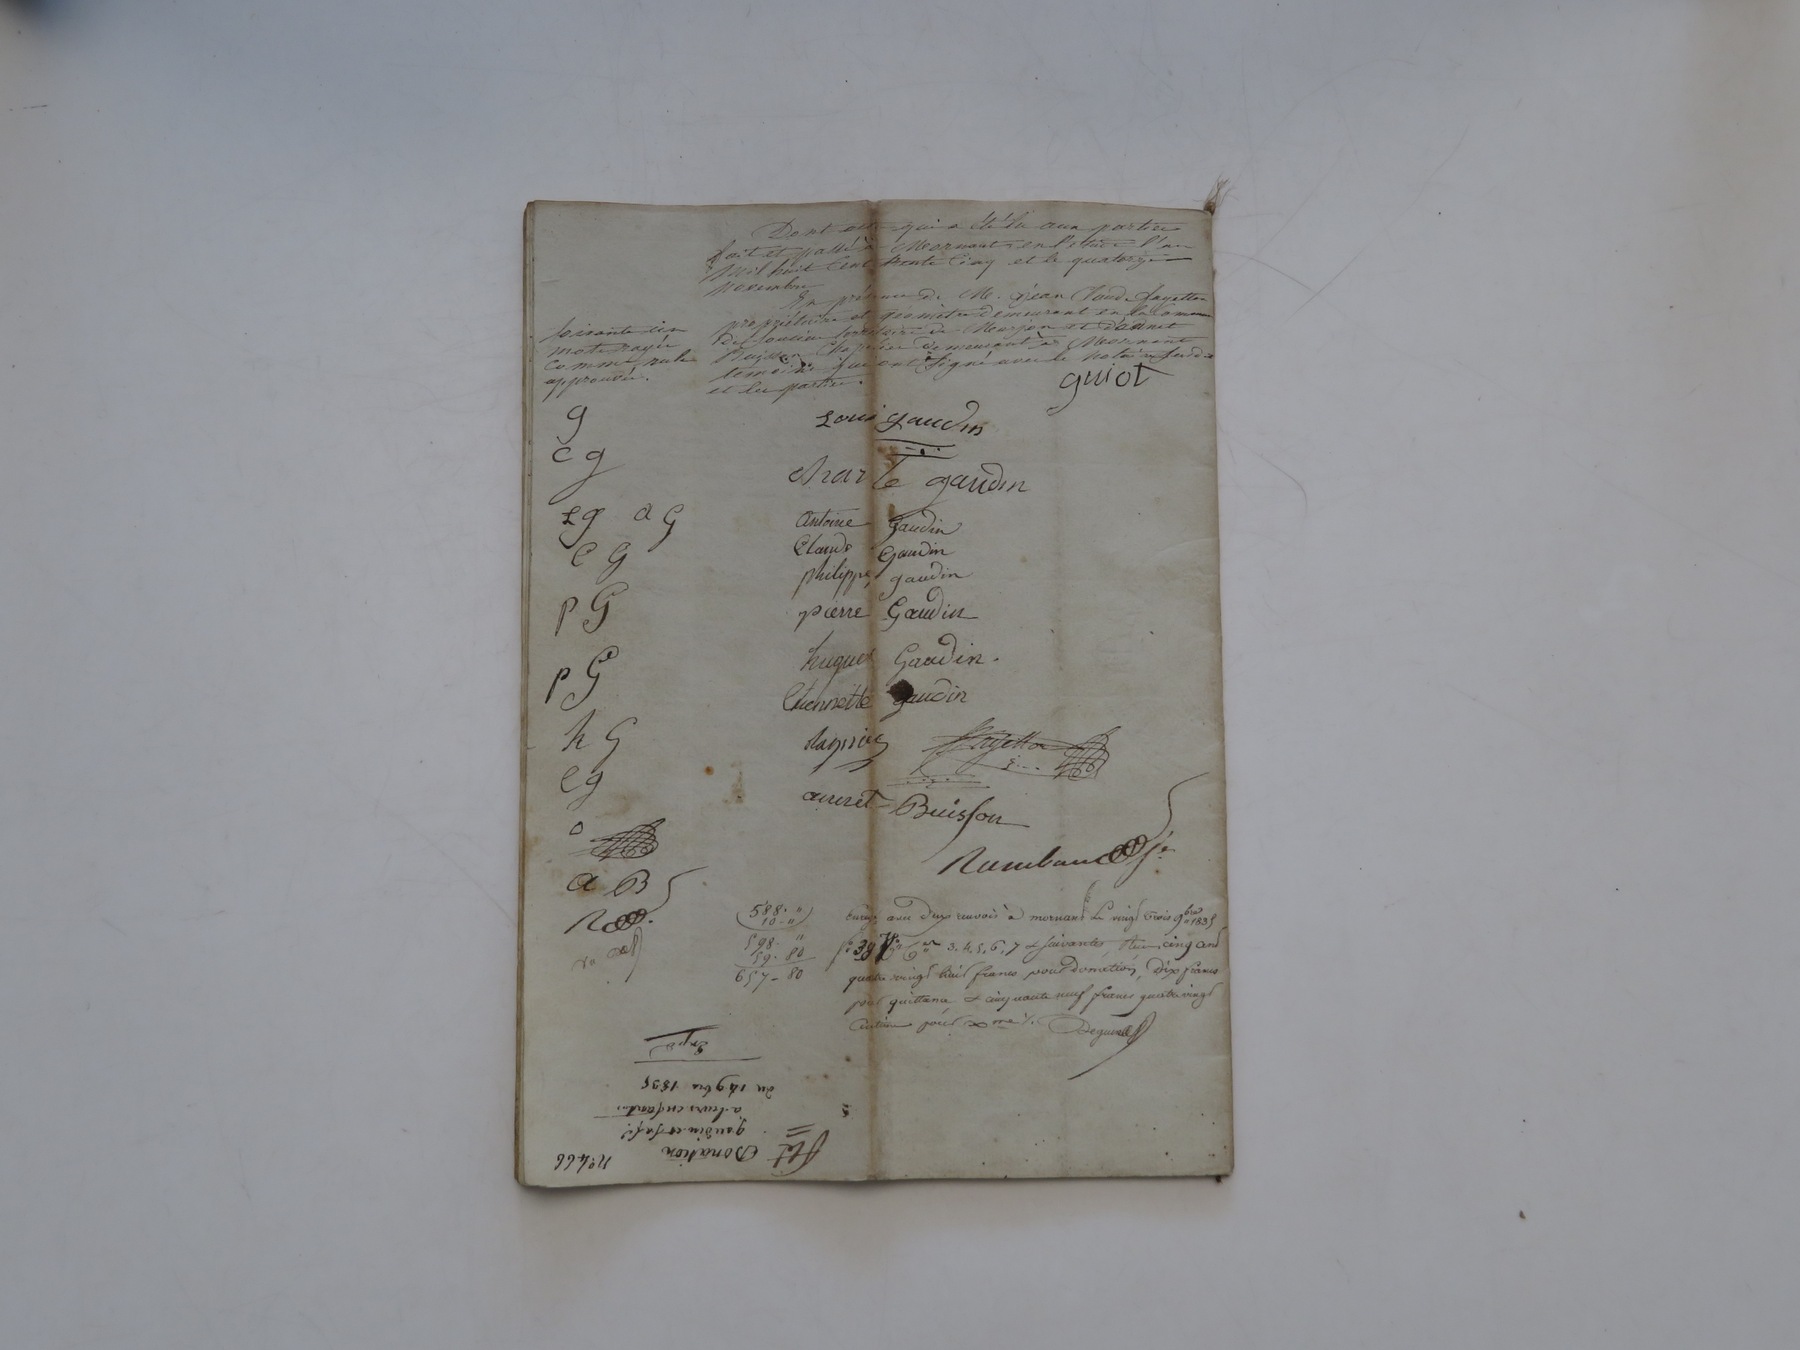 Dont acte qui a été lu aux parties
fait et passé à Mornant en l'etude l'an
mil huit Cent trente Cinq et le quatorze
novembre
En présence de M. jean Claude fayetton
propriétaire et géomètre demeurant en la Commune
de territoire de et d'aunet
Buisson Chapelier demeurant à Mornant
temoins qui ont signé avec le notaire
et les parties.
mots rayés
Comme nuls
approuvés.
guiot
g
Louis gaudin
c g
gaudin
Lg a G
antoine Gaudin
C G
Claude Gaudin
philippe gaudin
p G
pierre Gaudin
hugues Gaudin.
p G
Etiennette gaudin
h G
fayetton
e g
aunet Buisson
a B
588. "
10 - "
598. "
59. 80
657 - 80
deux renvois à mornant Le vingt trois 9bre 1835
3, 4, 5, 6, 7 & suivantes, cinq cent
quatre vingt huit francs pour donation, Dix francs
pour quittance & cinquante neuf francs quatre vingt
centimes pour xme /.
N° 466
Donation
gaudin et
a leurs enfants
du 14 9bre 1835